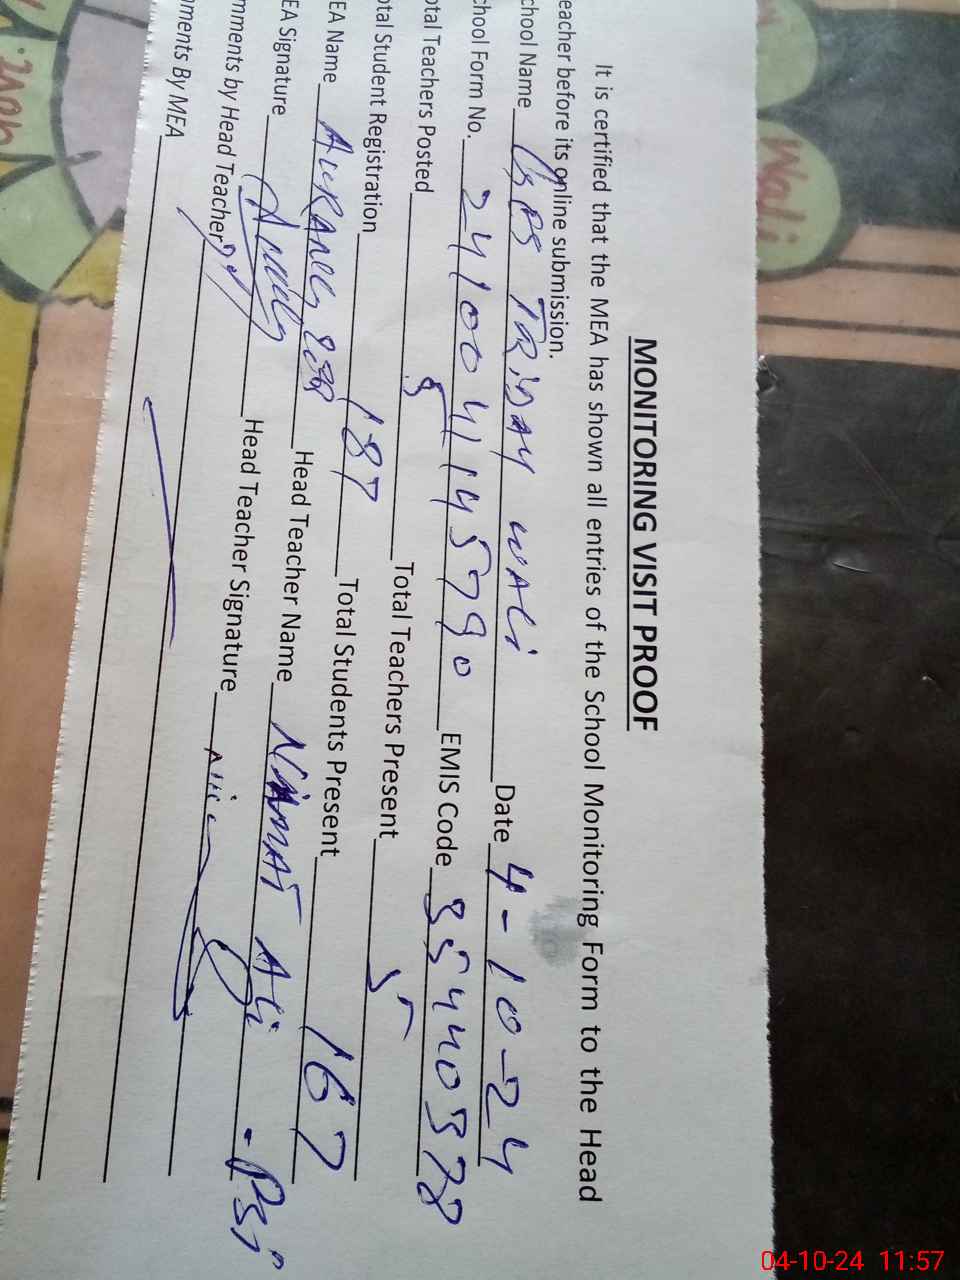 MONITORING VISIT PROOF
It is certified that the MEA has shown all entries of the School Monitoring Form to the Head
eacher before its online submission.
chool Name GPS TRiDAY WALi Date 4-10-24
chool Form No. 2410041145790 EMIS Code 35440378
otal Teachers Posted 5 Total Teachers Present 5
otal Student Registration 187 Total Students Present 167
EA Name AURANG ZEB Head Teacher Name NiAMAT ALi - PST
EA Signature Head Teacher Signature
mments by Head Teacher
ments By MEA
Wadi
04-10-24 11:57